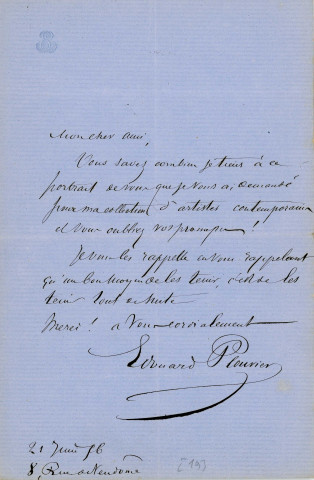 Mon cher ami,
Vous savez combien je tiens à ce
portrait de vous que je vous ai demandé
pour ma collection d'artistes contemporains
et vous oubliez vos promesses !
Je vous les rappelle en vous rappelant
qu'un bon moyen de les tenir, c'est de les
tenir tout de suite
Merci ! à vous cordialement
Edouard Plouvier
21 Juin 56
8, Rue de Vendôme
[19]